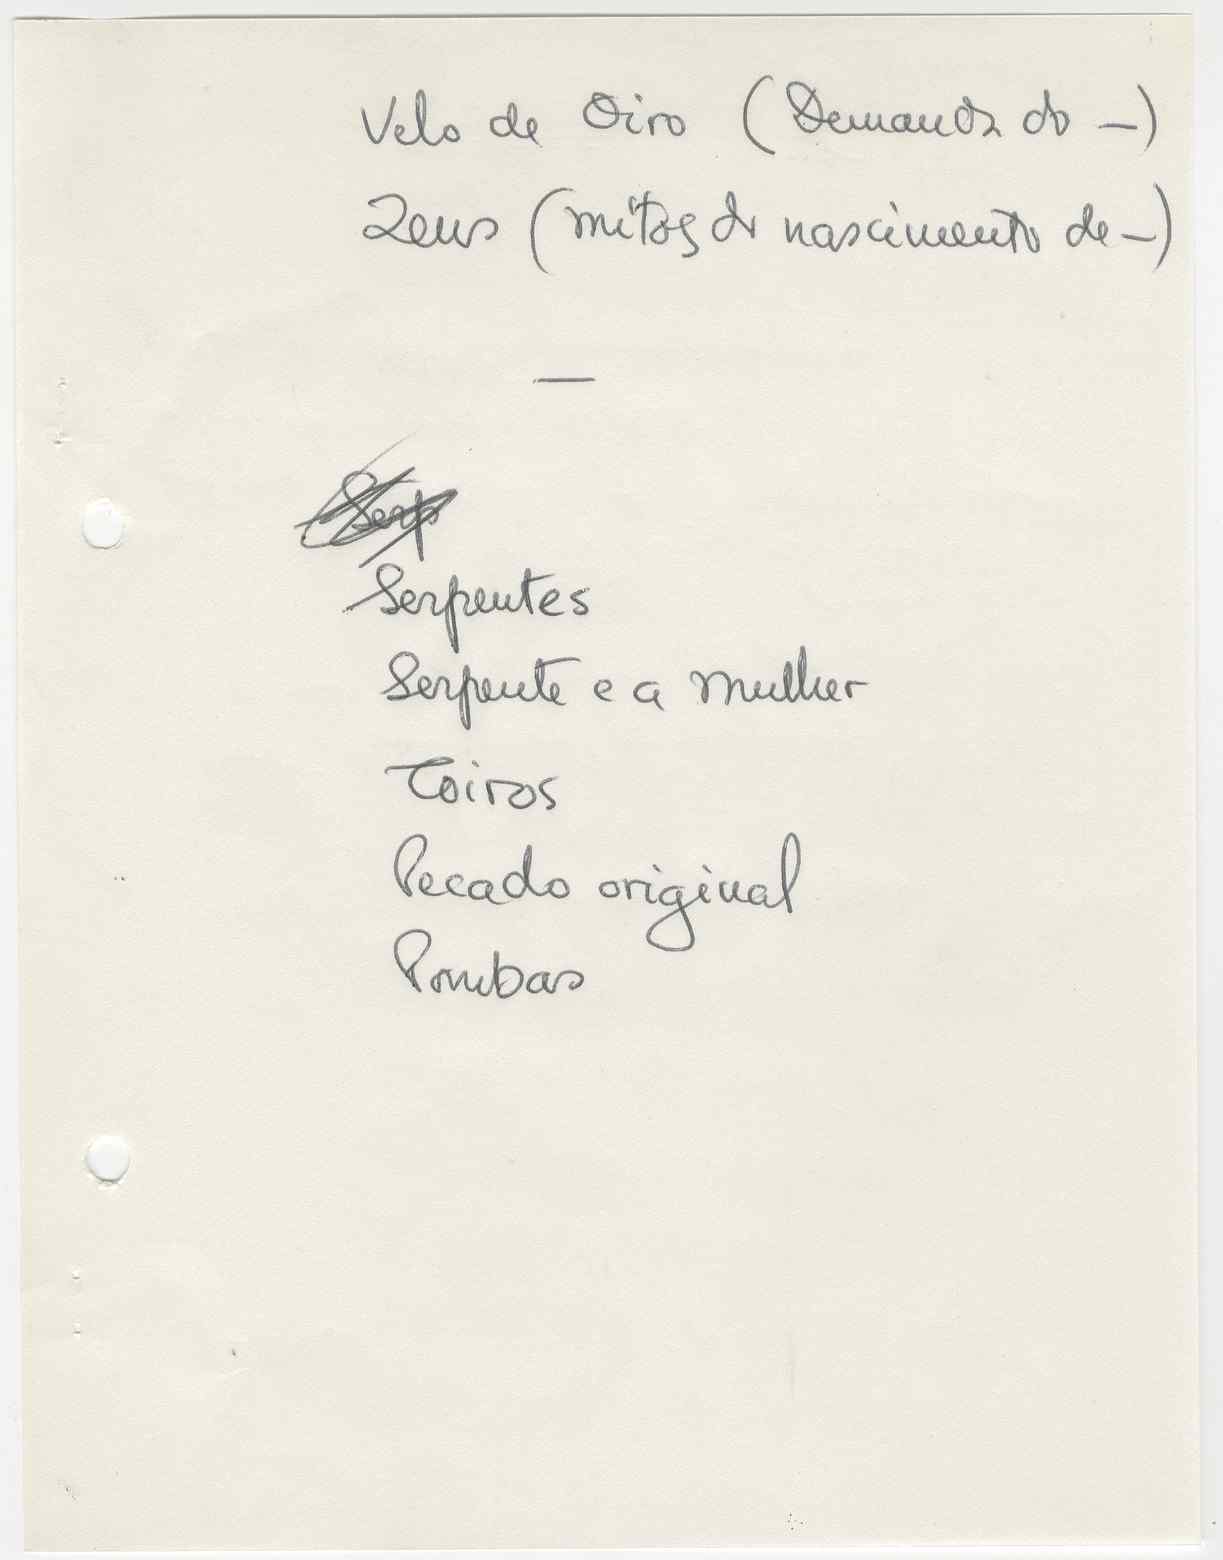 Velo de Oiro (Demanda do —)
Zeus (mitos do nascimento de —)
—
Serp
Serpentes
Serpente e a mulher
Toiros
Pecado original
Pombas